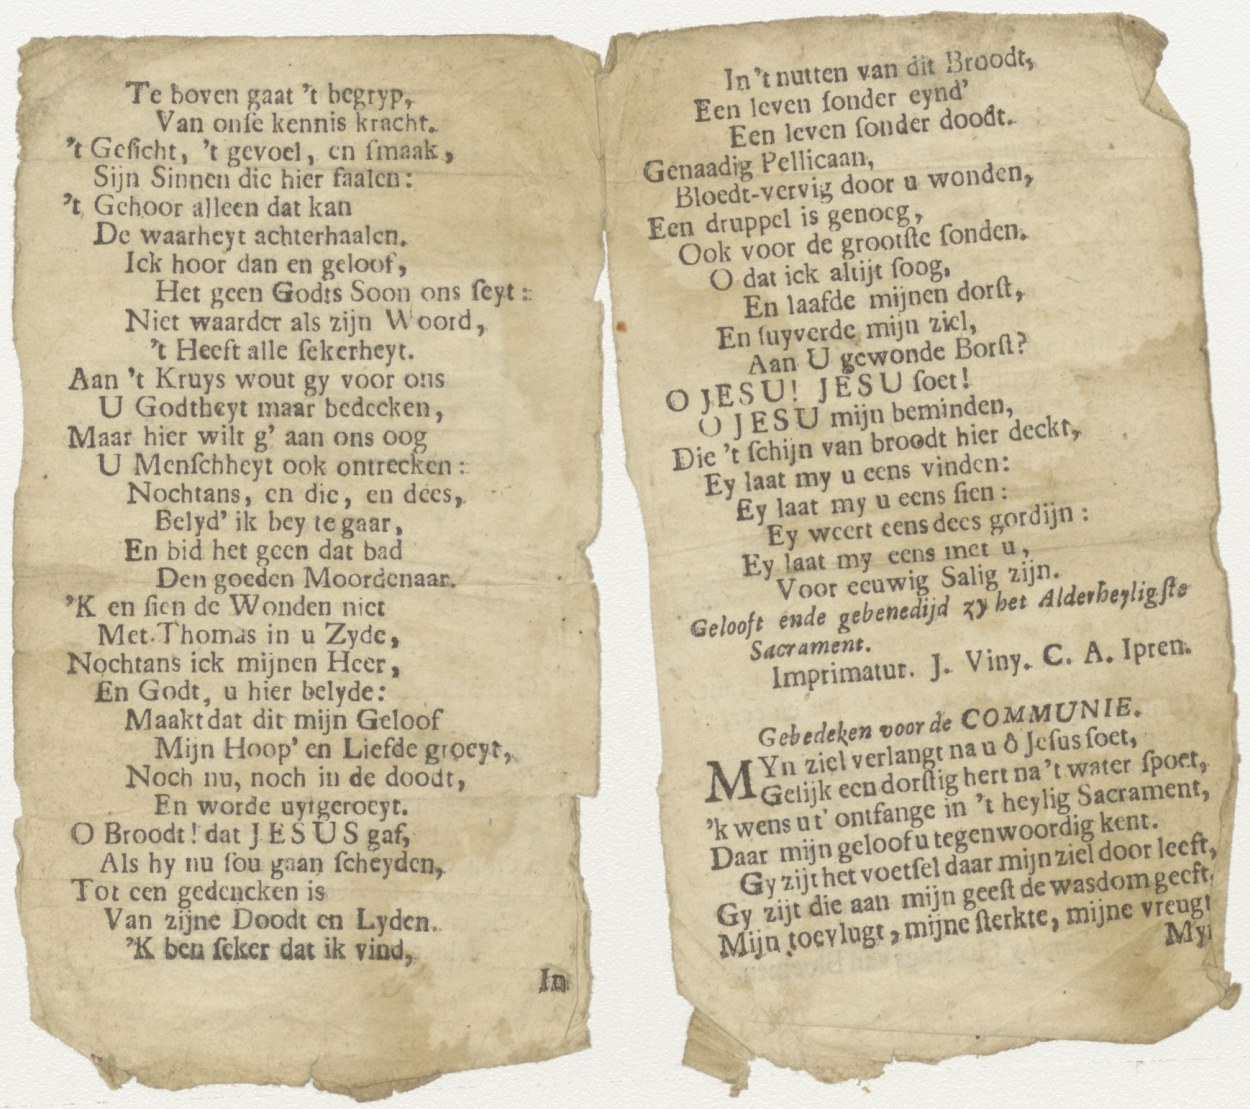 Te boven gaat 't begryp,
Van onſe kennis kracht.
't Geſicht, 't gevoel, en ſmaak,
Sijn Sinnen die hier faalen:
't Gehoor alleen dat kan
De waarheyt achterhaalen.
Ick hoor dan en geloof,
Het geen Godts Soon ons ſeyt:
Niet waarder als zijn Woord,
't Heeft alle ſekerheyt.
Aan 't Kruys wout gy voor ons
U Godtheyt maar bedecken,
Maar hier wilt g' aan ons oog
U Menſchheyt ook ontrecken:
Nochtans, en die, en dees,
Belyd' ik bey te gaar,
En bid het geen dat bad
Den goeden Moordenaar.
'K en ſien de Wonden niet
Met Thomas in u Zyde,
Nochtans ick mijnen Heer,
En Godt, u hier belyde:
Maakt dat dit mijn Geloof
Mijn Hoop' en Liefde groeyt,
Noch nu, noch in de doodt,
En worde uytgeroeyt.
O Broodt! dat JESUS gaf,
Als hy nu ſou gaan ſcheyden,
Tot een gedencken is
Van zijne Doodt en Lyden.
'K ben ſeker dat ik vind,
In
In 't nutten van dit Broodt,
Een leven ſonder eynd'
Een leven ſonder doodt.
Genaadig Pellicaan,
Bloedt-vervig door u wonden,
Een druppel is genoeg,
Ook voor de grootſte ſonden.
O dat ick altijt ſoog,
En laafde mijnen dorſt,
En ſuyverde mijn ziel,
Aan U gewonde Borſt?
O JESU! JESU ſoet!
O JESU mijn beminden,
Die 't ſchijn van broodt hier deckt,
Ey laat my u eens vinden:
Ey laat my u eens ſien:
Ey weert eens dees gordijn:
Ey laat my eens met u,
Voor eeuwig Salig zijn.
Gelooft ende gebenedijd zy het Alderheyligſte
Sacrament.
Imprimatur. J. Viny. C. A. Ipren.
Gebedeken voor de COMMUNIE.
MYn ziel verlangt na u ô Jeſus ſoet,
Gelijk een dorſtig hert na 't water ſpoet,
'k wens u t' ontfange in 't heylig Sacrament,
Daar mijn geloof u tegenwoordig kent.
Gy zijt het voetſel daar mijn ziel door leeft,
Gy zijt die aan mijn geeſt de wasdom geeft.
Mijn toevlugt, mijne ſterkte, mijne vreugt
Myn